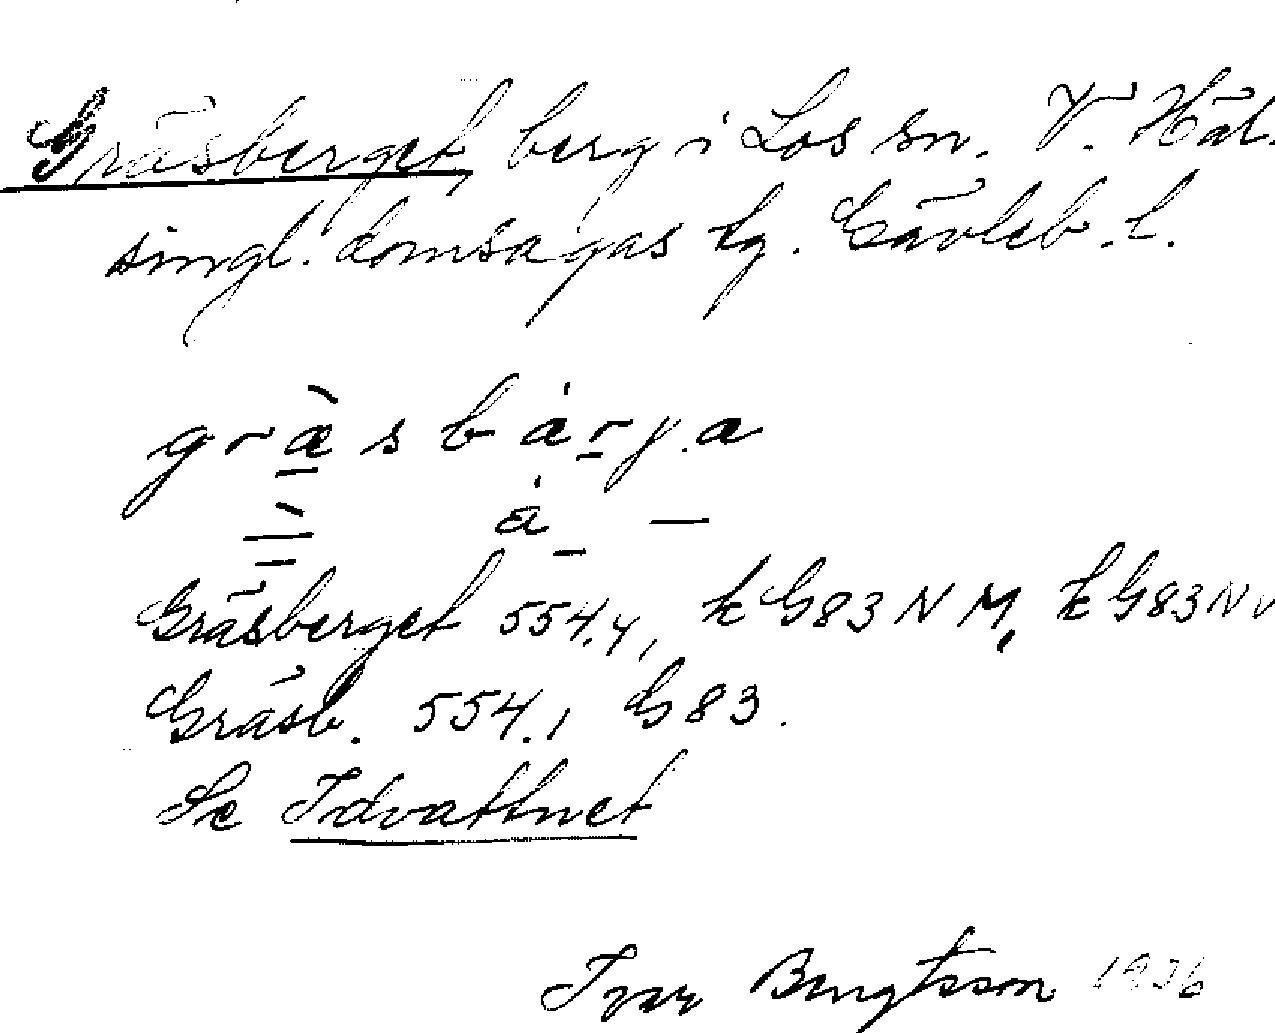 Gräsberget, berg i Los sn. V. Häl-
singl. domsagas tg. Gävleb. l.
græ̀sbȧrja
ȧ —
Gräsberget 554.4, k G83 N M, k G83 N V
Gräsb. 554.1 G 83.
Se Idvattnet
Ivar Bengtsson 1936